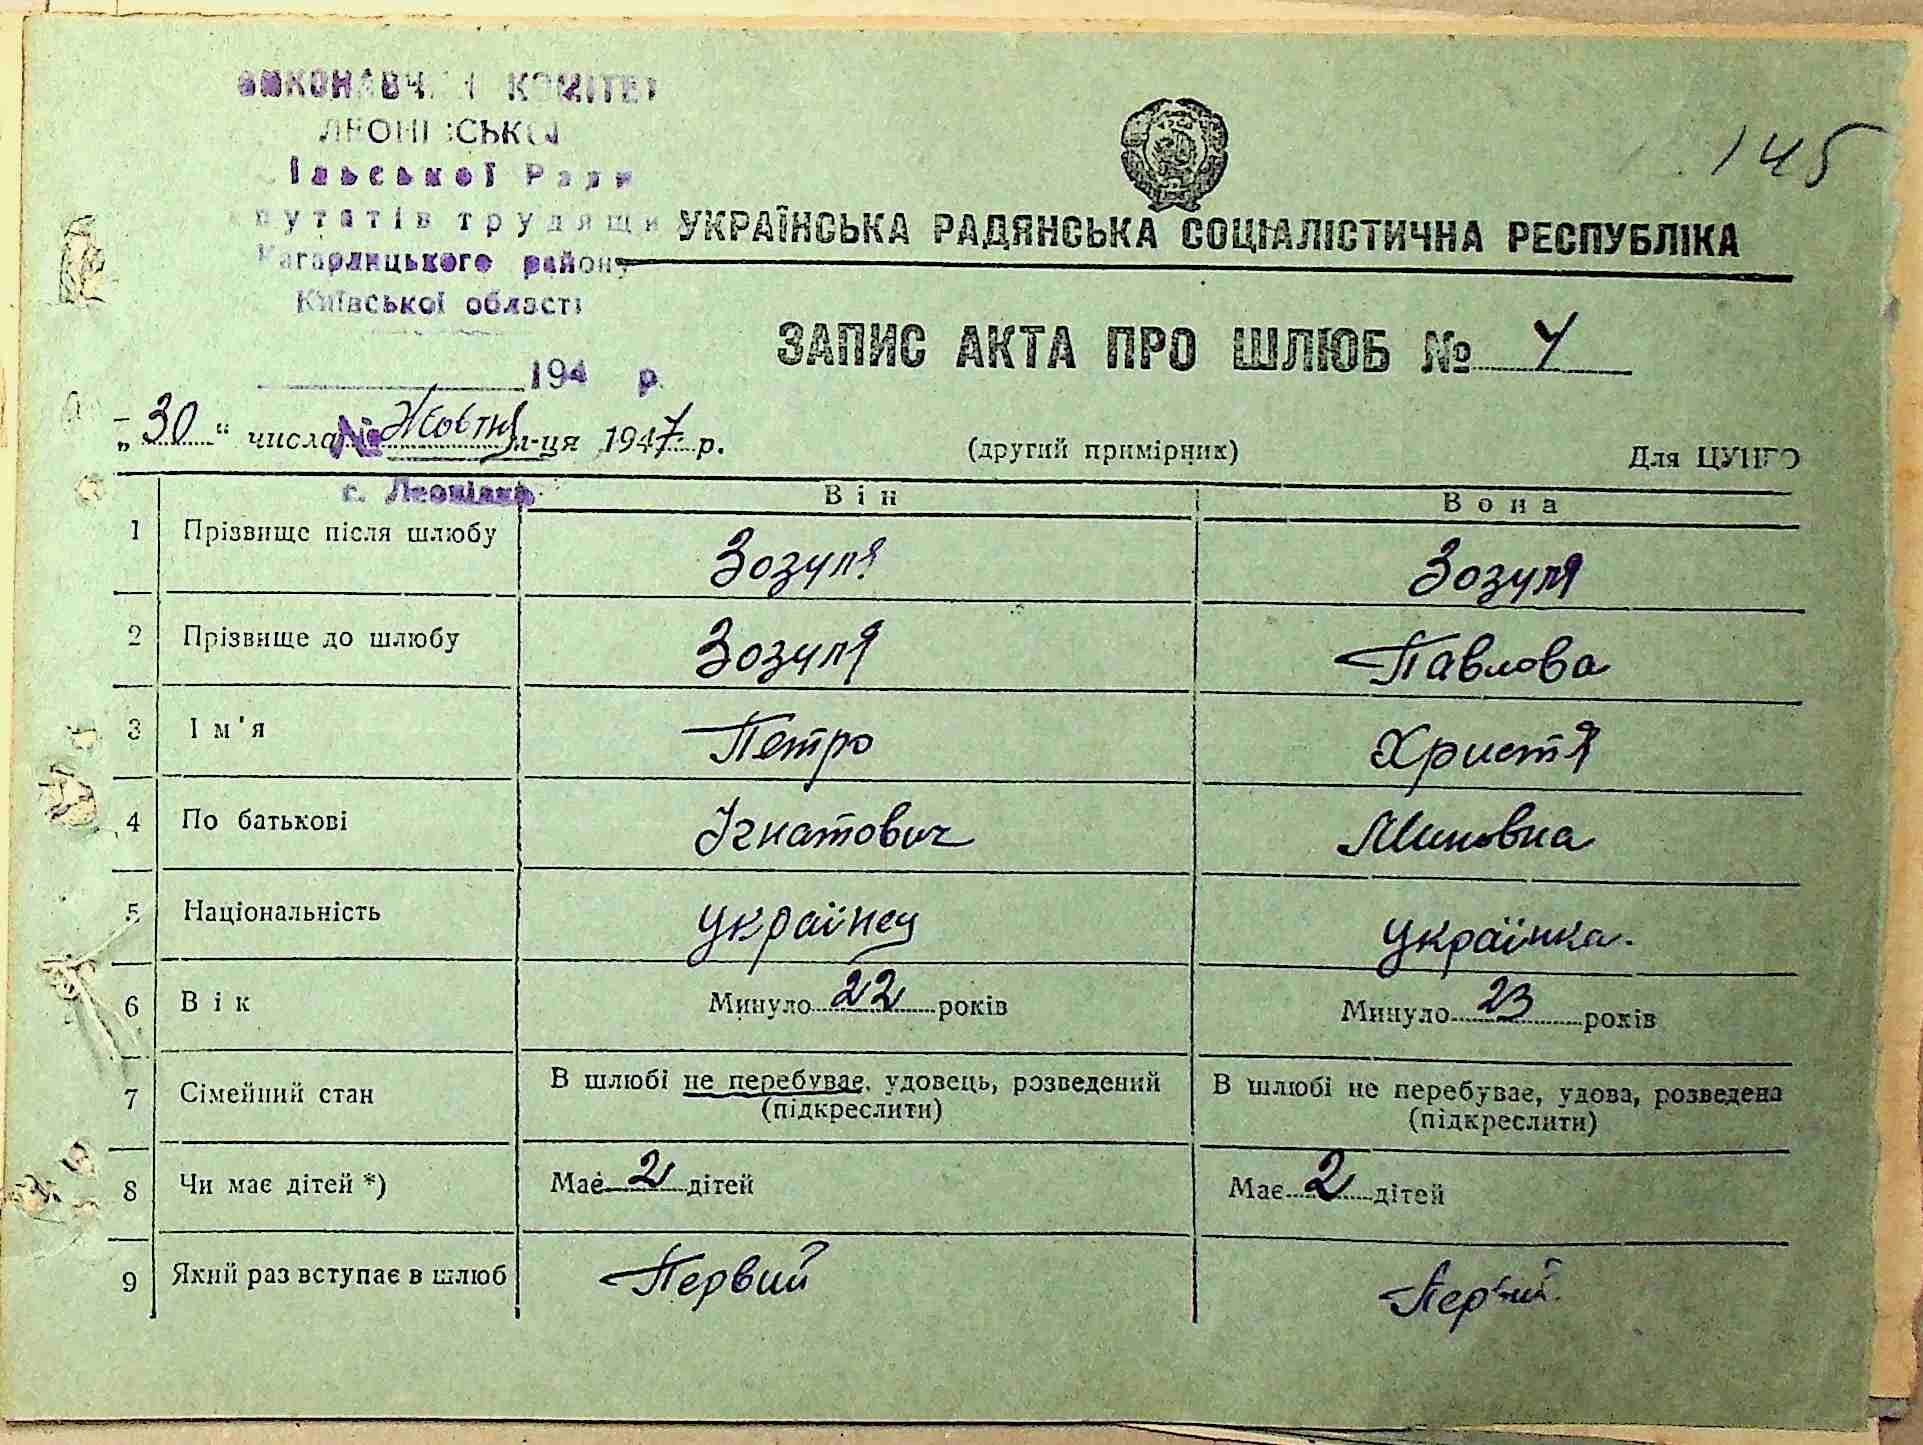 ВИКОНАВЧИЙ КОМІТЕТ
ЛЕОНІВСЬКОЇ
Сільської Ради
депутатів трудящих
Кагарлицького району
Київської області
145
УКРАЇНСЬКА РАДЯНСЬКА СОЦІАЛІСТИЧНА РЕСПУБЛІКА
ЗАПИС АКТА ПРО ШЛЮБ № 4
194 р.
„30“ числа № Жовтня м-ця 1947 р.
(другий примірник)
Для ЦУНГО
с. Леонівка
Він Вона
1 Прізвище після шлюбу Зозуля Зозуля
2 Прізвище до шлюбу Зозуля Павлова
3 Ім'я Петро Христя
4 По батькові Ігнатович Миновна
5 Національність українец українка.
6 Вік Минуло 22 років Минуло 23 років
7 Сімейний стан В шлюбі не перебуває, удовець, розведений В шлюбі не перебуває, удова, розведена
(підкреслити) (підкреслити)
8 Чи має дітей *) Має 2 дітей Має 2 дітей
9 Який раз вступає в шлюб Первий Первий